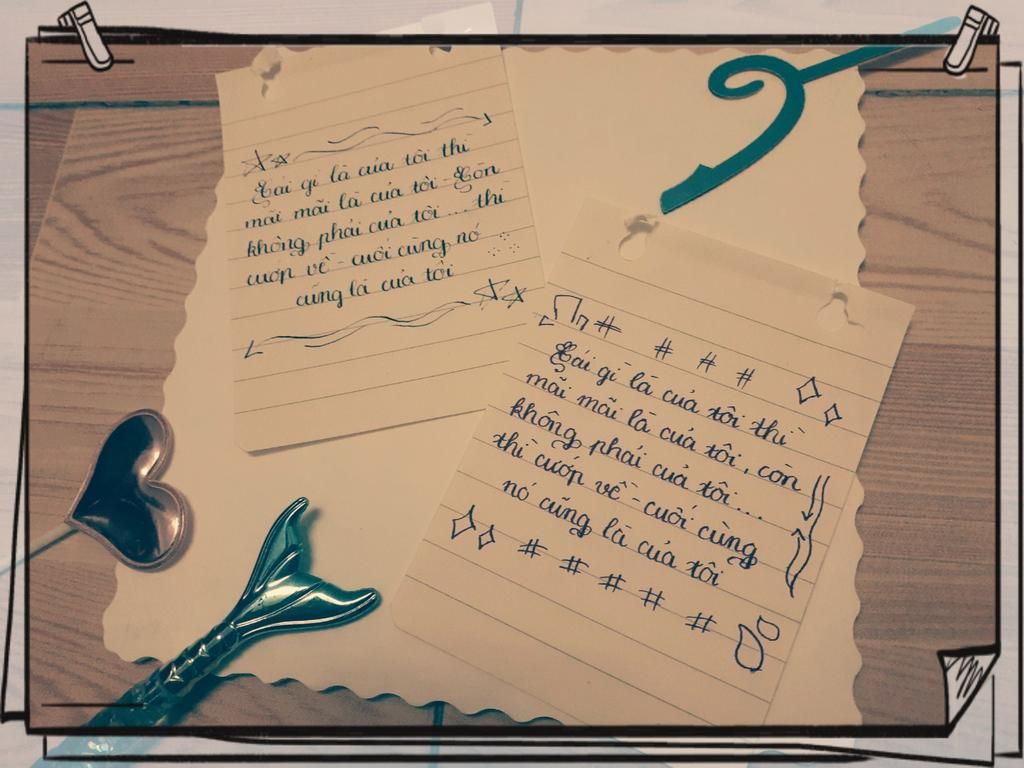 Cái gì là của tôi thì
mãi mãi là của tôi - Còn
không phải của tôi .... thì
cướp về - cuối cùng nó
cũng là của tôi
Cái gì là của tôi thì
mãi mãi là của tôi, còn
không phải của tôi ...
thì cướp về - cuối cùng
nó cũng là của tôi